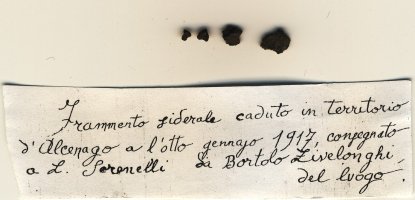 Frammento siderale caduto in territorio
d'Alcenago a l'otto gennajo 1917, consegnato
a L. Serenelli da Bortolo Zivelonghi,
del luogo.